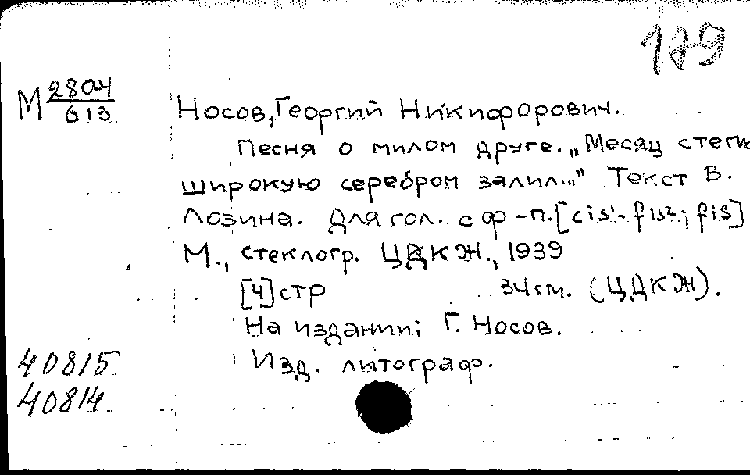 179
М 2804/613
Носов, Георгий Никифорович.
Песня о милом друге. „Месяц степь
широкую серебром залил..." Текст В.
Лозина. Для гол. с ф-п. [cis¹- fis²; fis]
М., стеклогр. ЦДКЖ., 1939
[4] стр 34 см. (ЦДКЖ).
На издании: Г. Носов.
Изд. литограф.
40815
40814